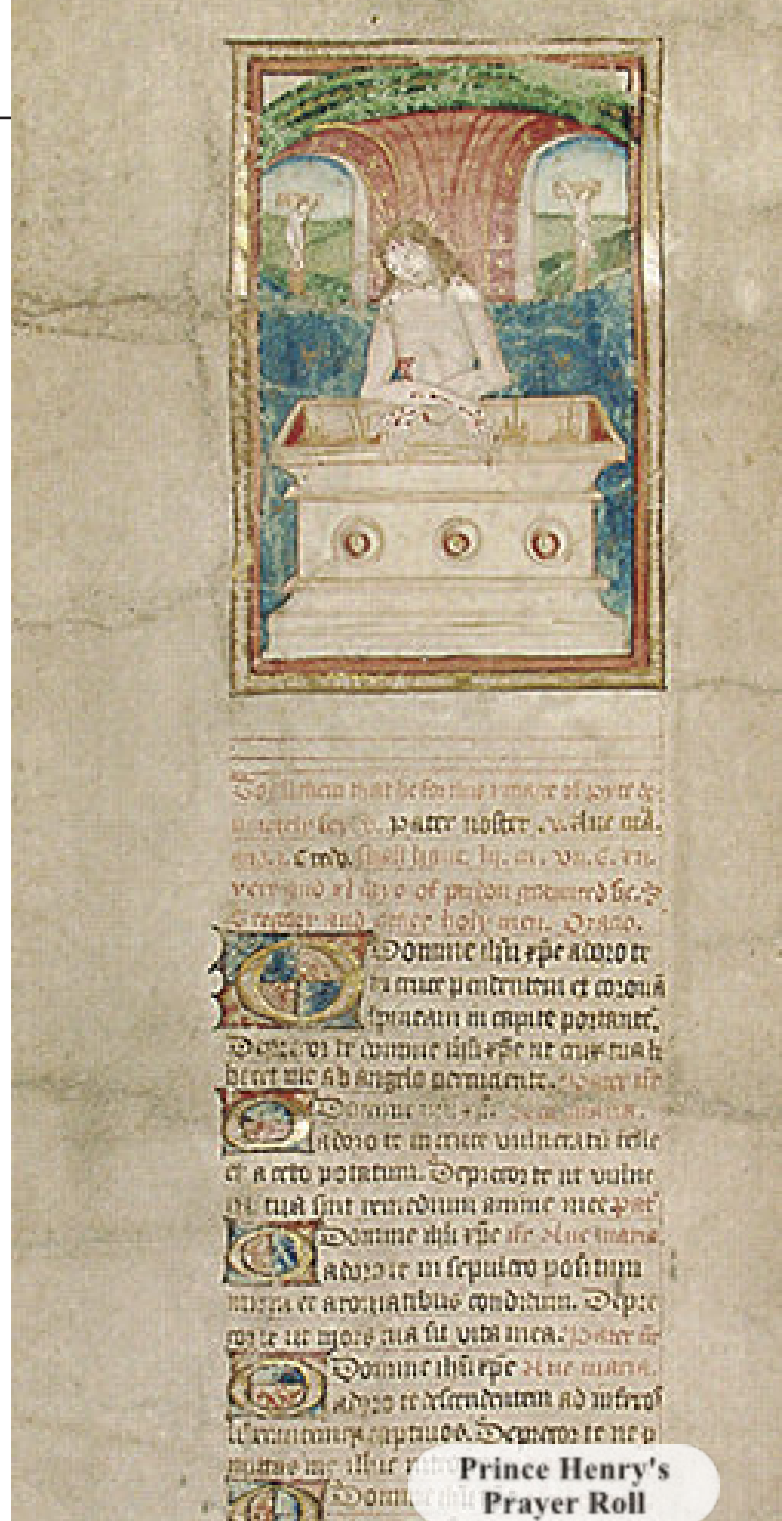 To all them that before this ymage of pyte de
pater noster .v. Aue mã.
Credo. shall haue
and of pardon graunted be. S
Gregory and other holy men. Oratio.
O Domine ihũ xp̃e adoro te
in cruce pendentem et coronã
spineam in capite portantẽ.
Deprecor te domine ihũ xp̃e ut crux tua li
beret me ab angelo percuciente. Pater nr̃
O Domine ihũ xp̃e Aue maria.
adoro te in cruce vulneratũ felle
et aceto potatum. Deprecor te ut vulne
ra tua sint remedium anime mee pat̃
O Domine ihũ xp̃e Aue maria.
adoro te in sepulcro positum
mirra et aromatibus conditum. Depre
cor te ut mors tua sit vita mea. Pater
O Domine ihũ xp̃e Aue maria.
adoro te descendentem ad inferos
captiuos. Deprecor te ne p
me illuc
O Domine
Prince Henry's
Prayer Roll